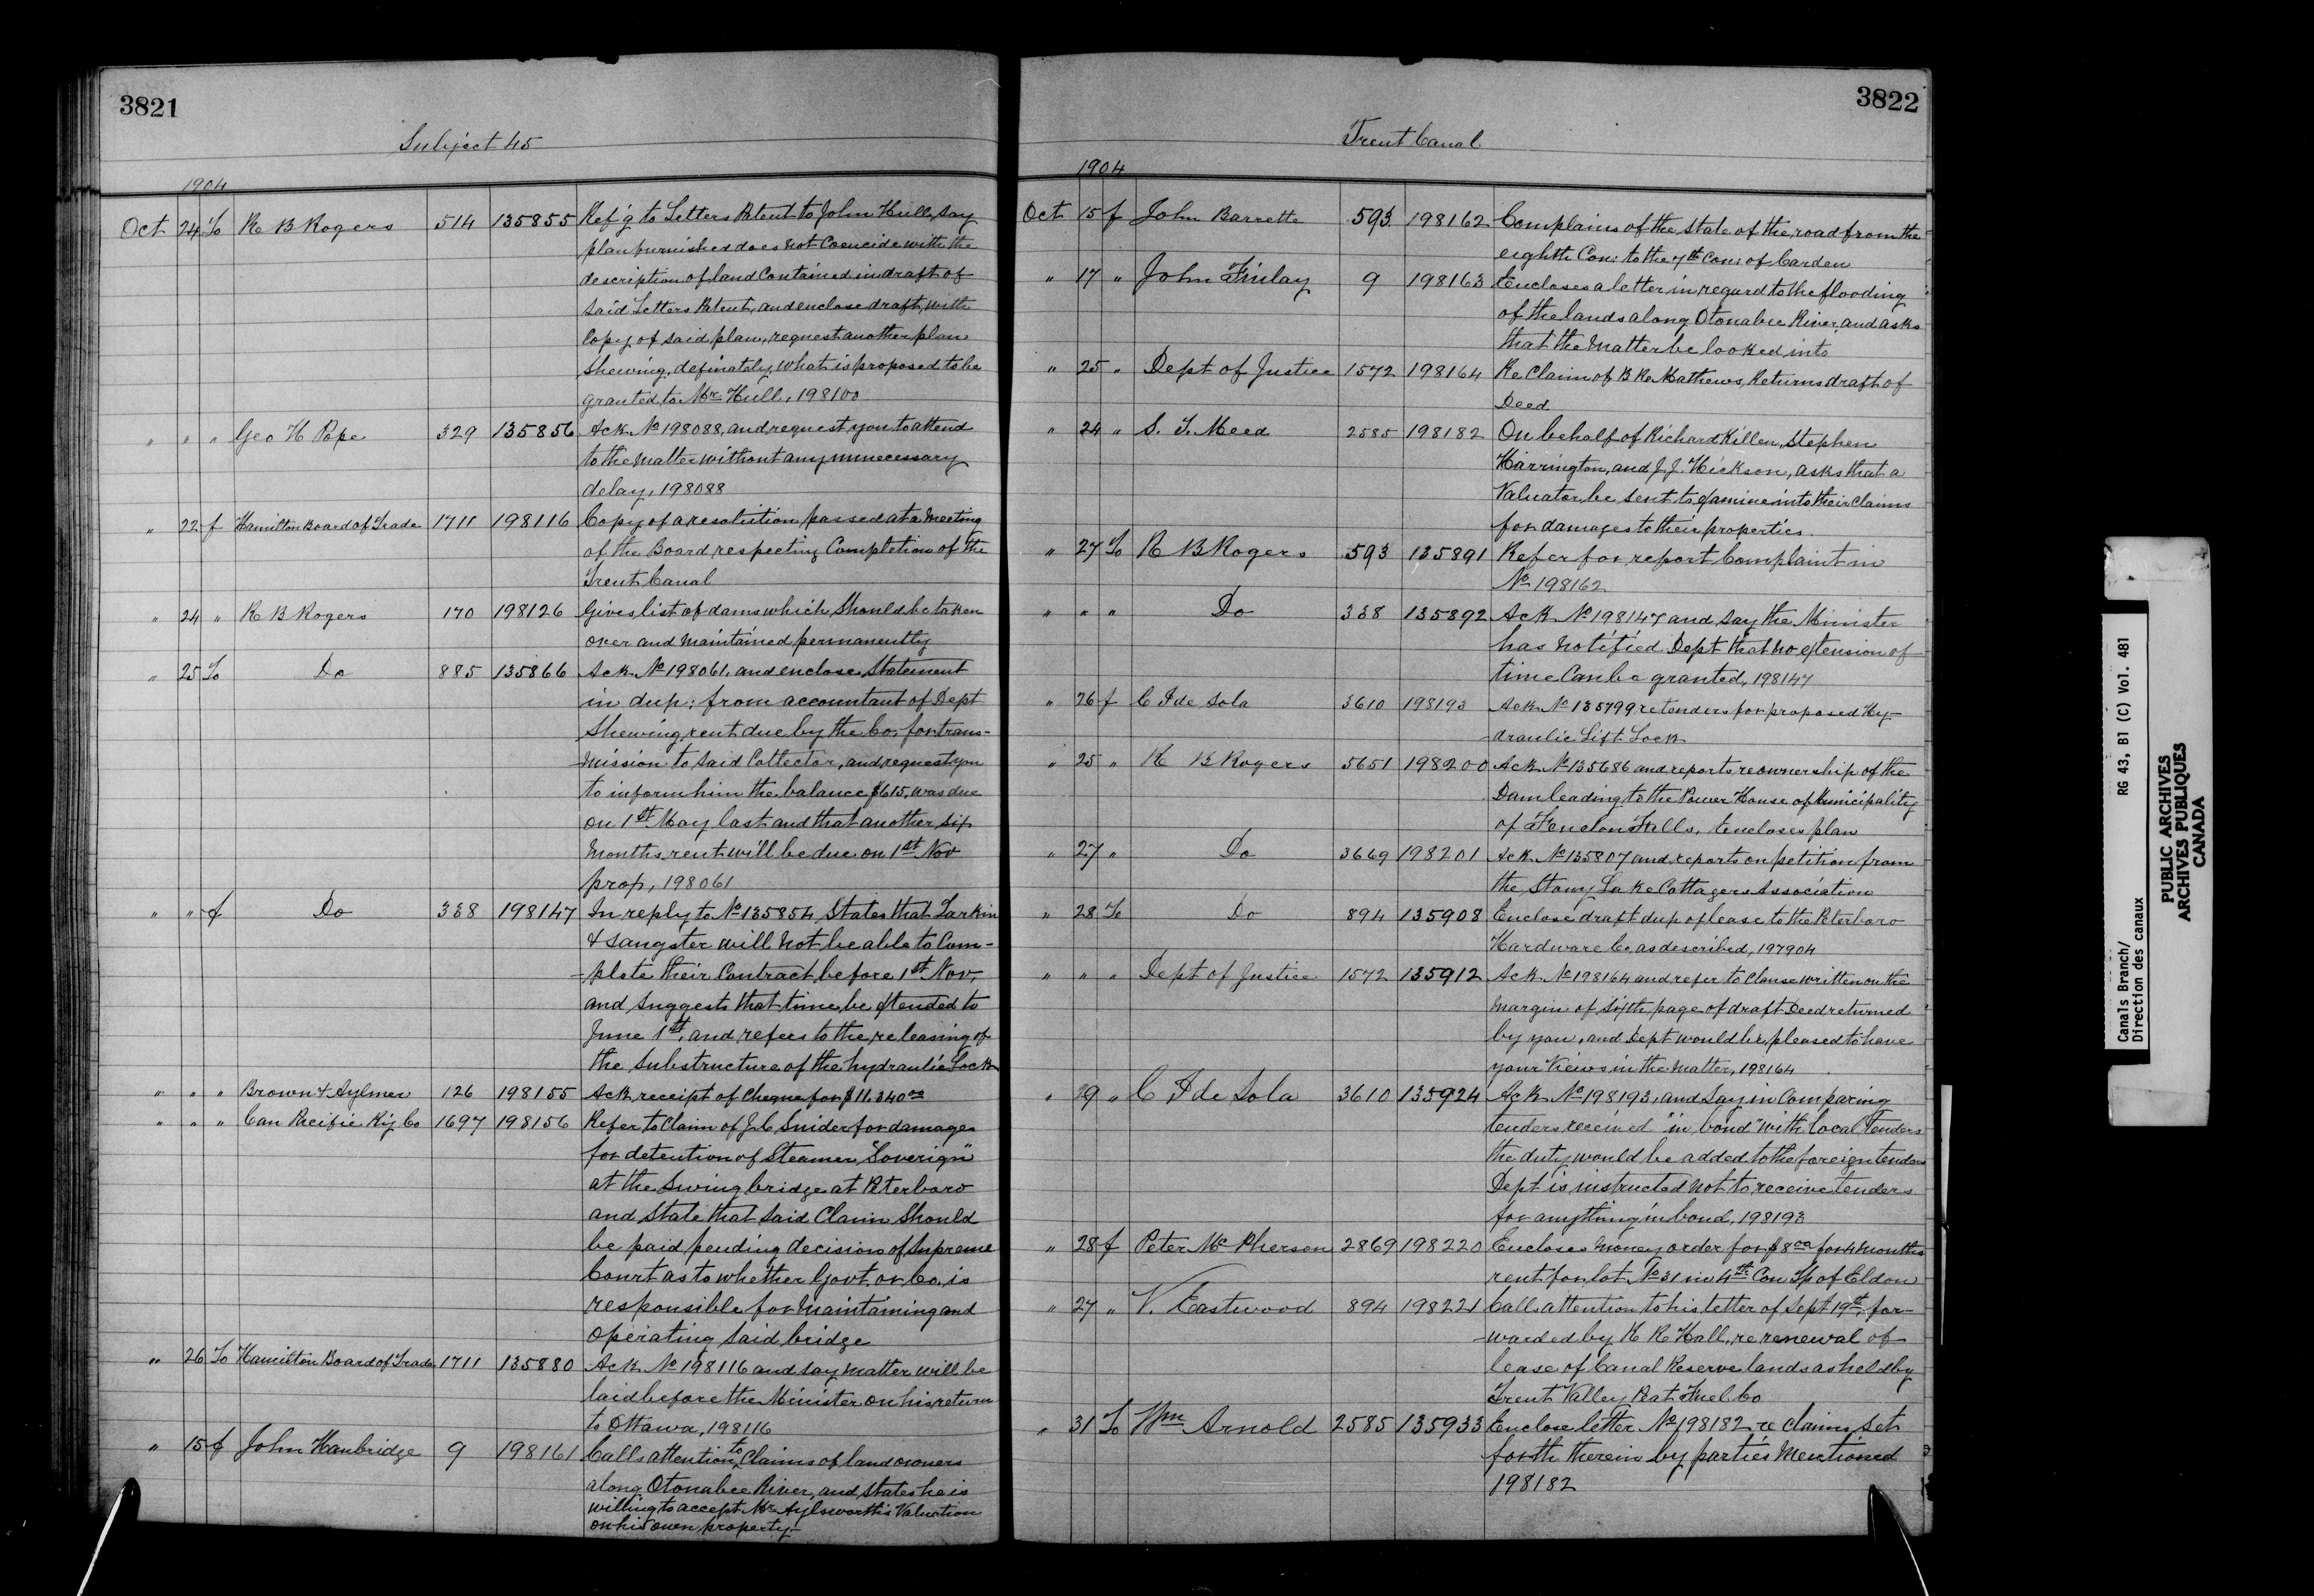 3821
Subject 45
1904
Oct 24 To R B Rogers 514 135855 Ref'g to Letters Patent to John Hull, say
plan furnished does not Coencide with the
description of land Contained in draft of
said Letters Patent, and enclose draft, with
Copy of said plan, request another plan
shewing, definately, what is proposed to be
granted to Mr Hull, 198100
" " " Geo H Pope 329 135856 Ack No 198088, and request you to attend
to the matter without any unnecessary
delay, 198088
" 22 f Hamilton Board of Trade 1711 198116 Copy of a resolution passed at a Meeting
of the Board respecting Completion of the
Trent Canal
" 24 " R B Rogers 170 198126 Gives list of dams which should be taken
over and maintained permanently
" 25 To Do 885 135866 Ack No 198061, and enclose Statement
in dup: from accountant of Dept
Shewing rent due by the Co, for trans-
-mission to said Collector, and request you
to inform him the balance $615, was due
on 1st May last and that another six
Months rent will be due on 1st Nov
prox, 198061
" " f Do 338 198147 In reply to No 135854 States that Larkin
& Sangster will not be able to Com-
-plete their Contract before 1st Nov,
and suggests that time be extended to
June 1st, and refers to the releasing of
the Substructure of the hydraulic Lock
" " " Brown & Aylmer 126 198155 Ack receipt of Cheque for $11,340 00
" " " Can Pacific Ry Co 1697 198156 Refer to Claim of J C Snider for damages
for detention of Steamer "Soverign"
at the Swing bridge at Peterboro
and State that said Claim should
be paid pending decision of Supreme
Court as to whether Govt or Co. is
responsible for Maintaining and
Operating said bridge
" 26 To Hamilton Board of Trade 1711 135880 Ack No 198116 and say matter will be
laid before the Minister on his return
to Ottawa, 198116
" 15 f John Hanbridge 9 198161 Calls attention to Claims of land owners
along Otonabee River, and states he is
willing to accept Mr Aylsworth's Valuation
on his own property-
3822
Trent Canal
1904
Oct 15 f John Barrette 593 198162 Complains of the state of the road from the
eighth Con: to the 7th Con: of Carden
" 17 " John Finlay 9 198163 Encloses a letter in regard to the flooding
of the lands along Otonabee River and asks
that the matter be looked into
" 25 " Dept of Justice 1572 198164 Re Claim of B Re Mathews, Returns draft of
Deed
" 24 " S. T. Meed 2585 198182 On behalf of Richard Killen, Stephen
Harrington, and J. J. Hickson, asks that a
Valuator be sent to examine into their Claims
for damages to their properties.
" 27 To R B Rogers 593 135891 Refer for report Complaint in
No 198162
" " " Do 338 135892 Ack No 198147 and say the Minister
has notified Dept that no extension of
time Can be granted, 198147
" 26 f C I de Sola 3610 198193 Ack No 135799 re tenders for proposed Hy-
-draulic Lift Lock
" 25 " R B Rogers 5651 198200 Ack No 135686 and reports re ownership of the
Dam leading to the Power House of Municipality
of Fenelon Falls, Encloses plan
" 27 " Do 3669 198201 Ack No 135807 and reports on petition from
the Stony Lake Cottagers Association
" 28 To Do 894 135908 Enclose draft dup of lease to the Peterboro
Hardware Co. as described, 197904
" " " Dept of Justice 1572 135912 Ack No 198164 and refer to Clause written on the
Margin of sixth page of draft Deed returned
by you, and Dept would be pleased to have
your Views in the Matter, 198164
" 29 " C I de Sola 3610 135924 Ack No 198193, and say in Comparing
tenders received "in bond" with local Tenders
the duty would be added to the foreign tenders
Dept is instructed not to receive tenders
for anything in bond, 198193
" 28 f Peter Mc Pherson 2869 198220 Encloses Money order for $8 00 for 4 months
rent for lot No 31 in 4th Con Tp of Eldon
" 27 " V. Eastwood 894 198221 Calls attention to his letter of Sept 19th, for-
-warded by R R Hall, re renewal of
lease of Canal Reserve lands as held by
Trent Valley Peat Fuel Co
" 31 To Wm Arnold 2585 135933 Enclose letter No 198182 re claims set
forth therein by parties Mentioned
198182
Canals Branch/ RG 43, B1 (C) Vol. 481
Direction des canaux
PUBLIC ARCHIVES
ARCHIVES PUBLIQUES
CANADA